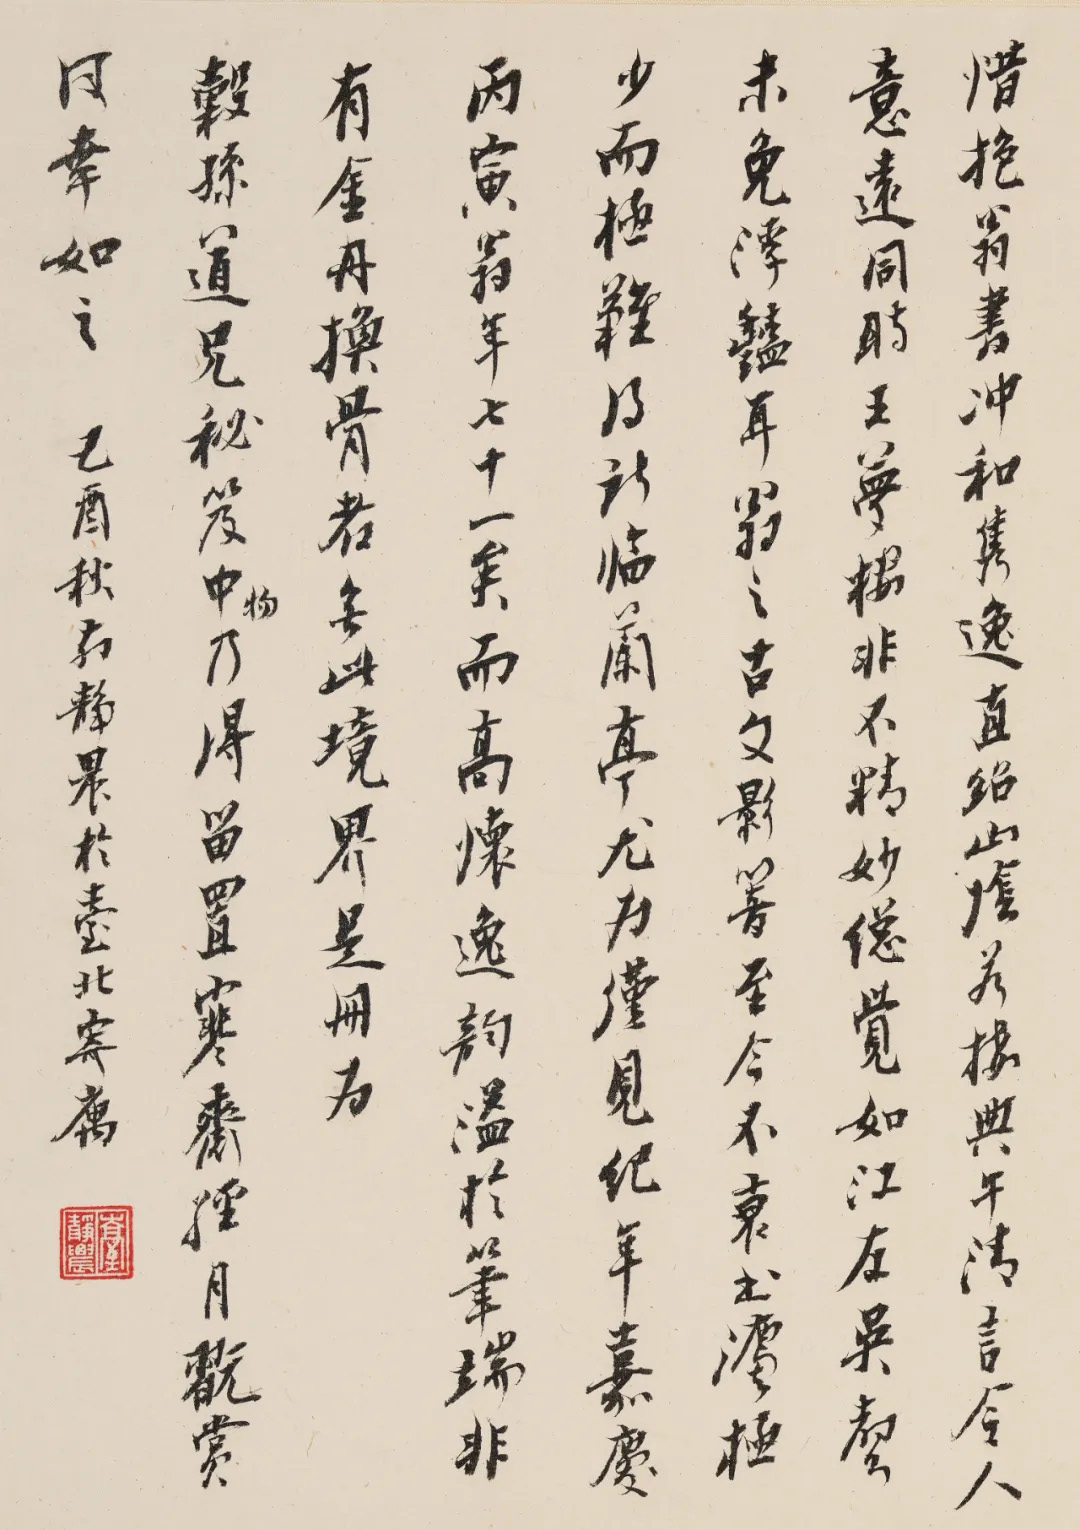 惜抱翁書冲和雋逸直紹山陰若接典午清言令人
意遠同時王夢樓非不精妙總覺如江左吳聲
未免浮豔耳翁之古文影響至今不衰書流極
少而極難得所臨蘭亭尤為僅見紀年嘉慶
丙寅翁年七十一矣而高懷逸韵溢於筆端非
有金丹換骨者無此境界是冊為
穀孫道兄秘笈中物乃得留置寒齋經月翫賞
何幸如之 己酉秋前靜農於臺北寄廬
臺靜農